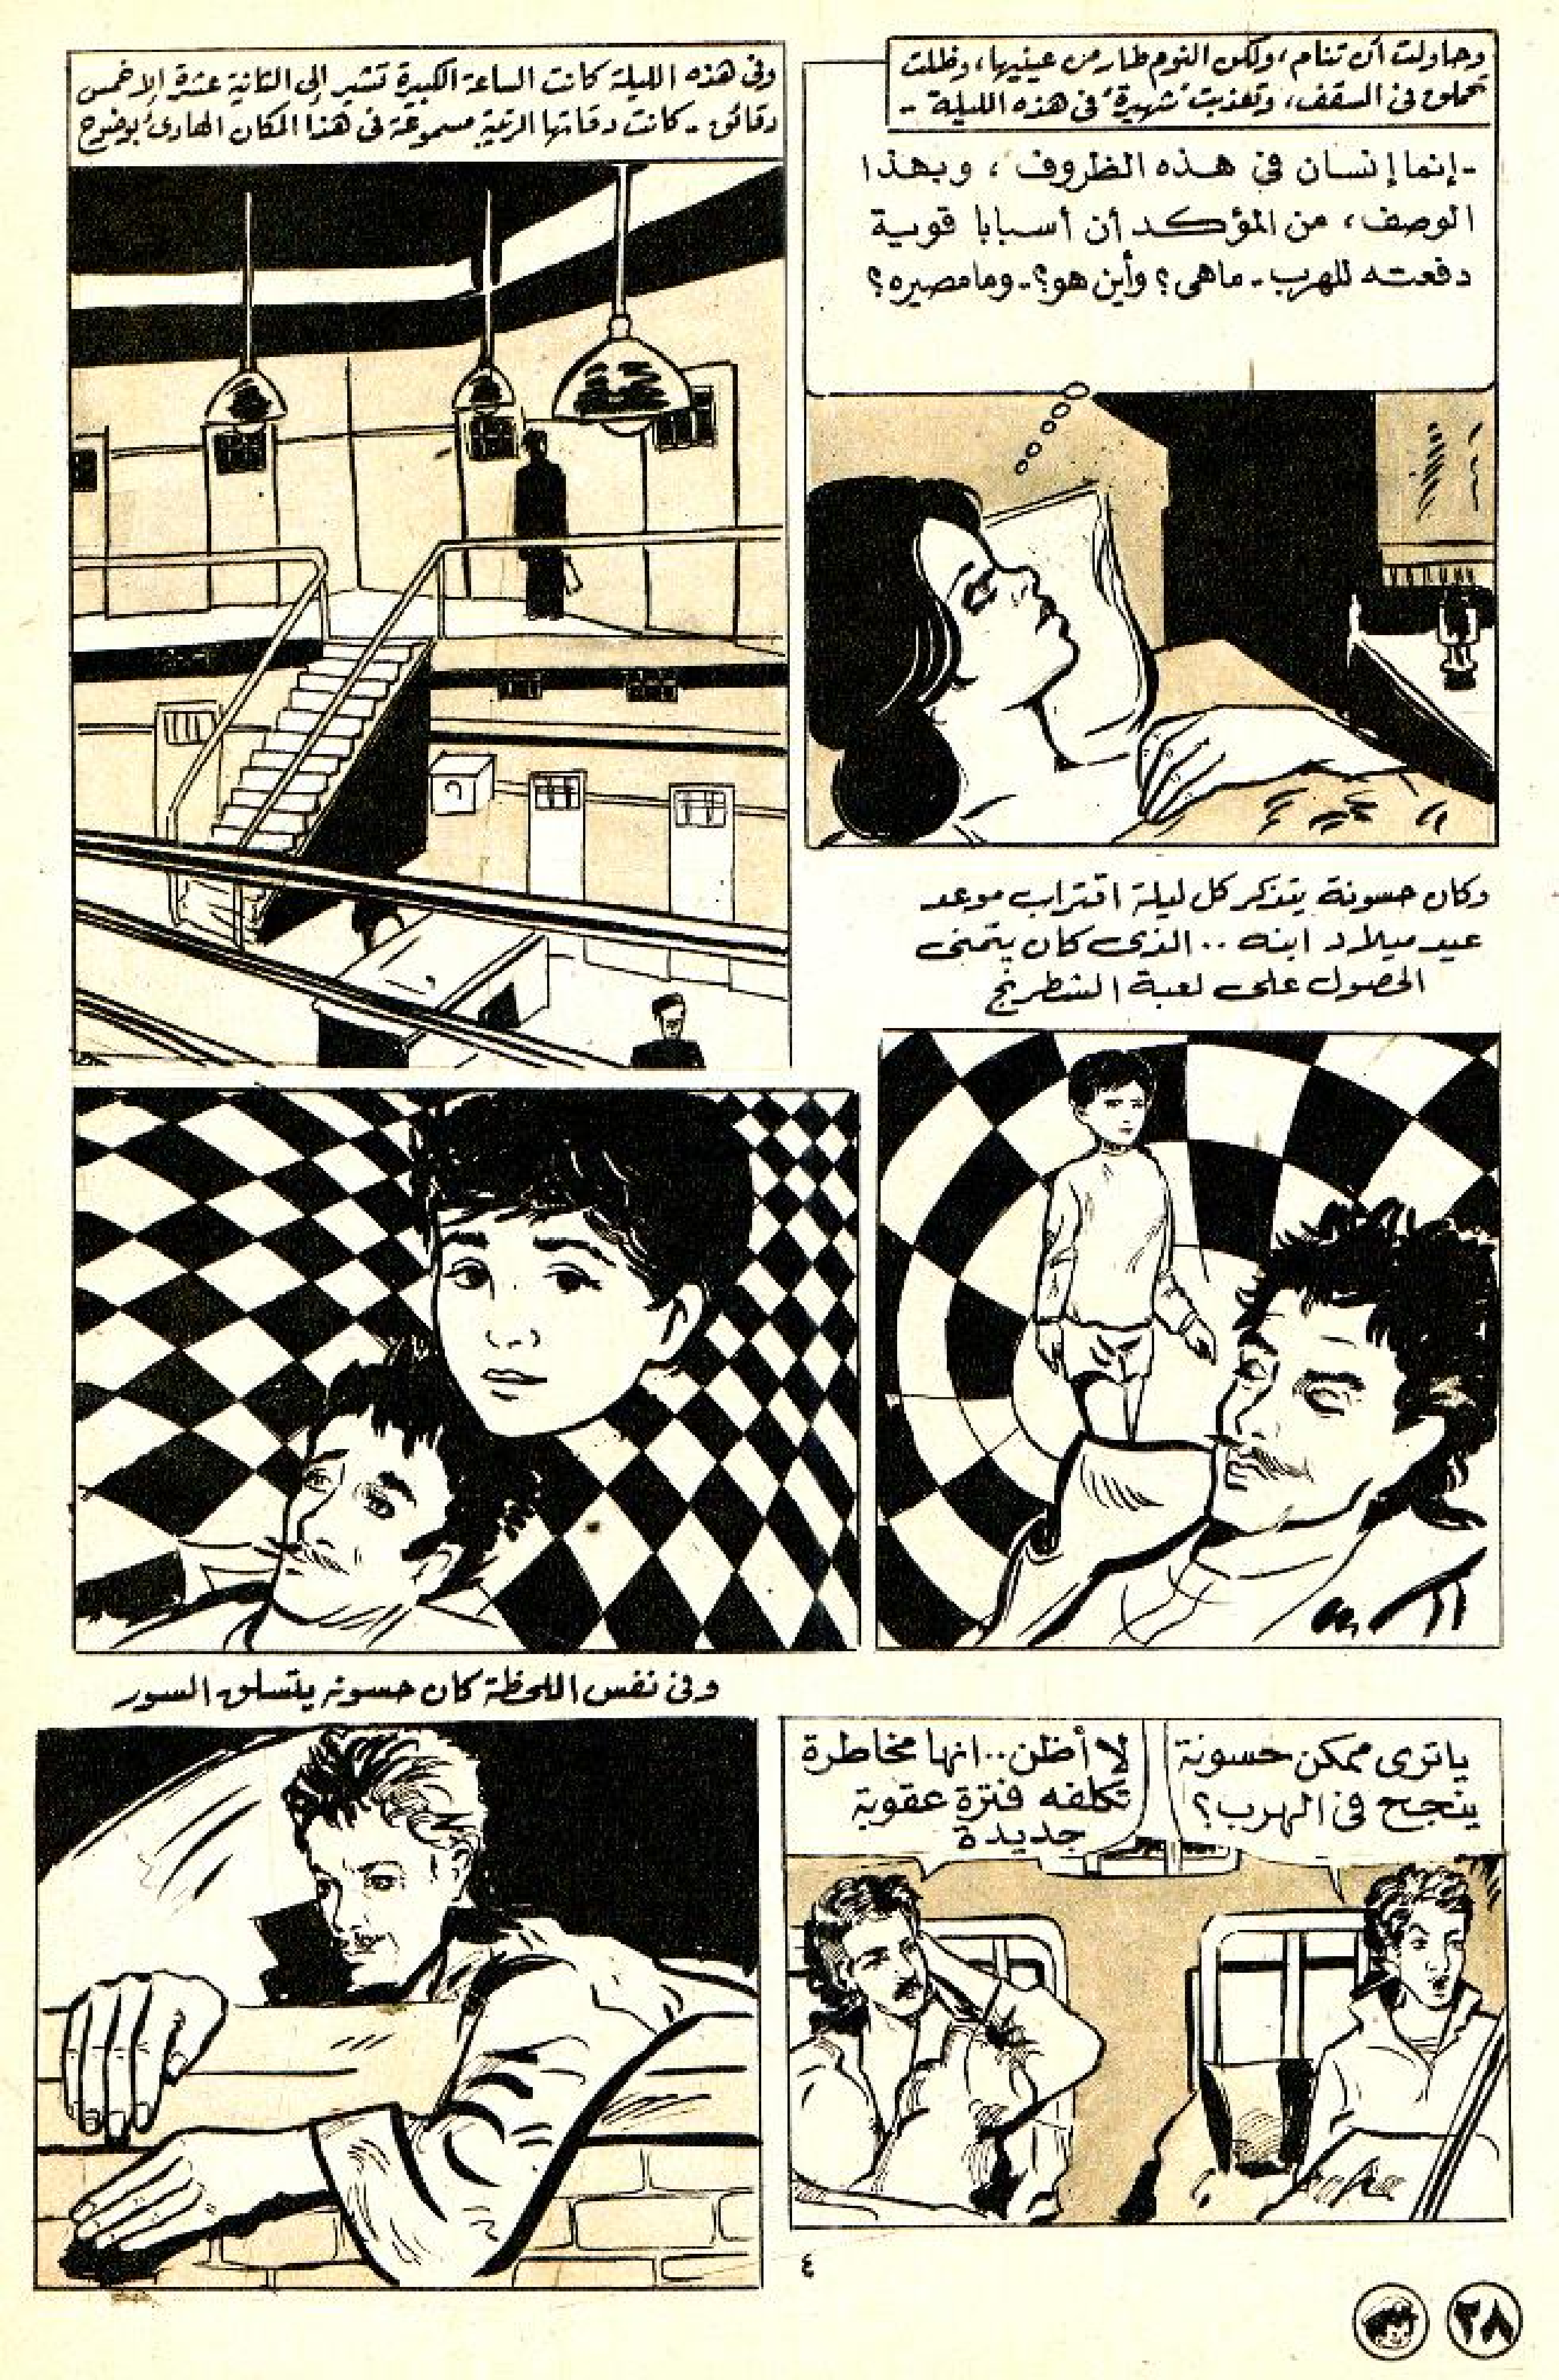 وحاولت أن تنام، ولكن النوم طار من عينيها، وظلت
تحملق فى السقف، وتعذبت "شهيرة" فى هذه الليلة -
- إنما إنسان في هذه الظروف، وبهذا
الوصف، من المؤكد أن أسبابا قوية
دفعته للهرب - ماهى؟ وأين هو؟ - ومامصيره؟
وفى هذه الليلة كانت الساعة الكبيرة تشير إلى الثانية عشرة إلا خمس
دقائق - كانت دقاتها الرتيبة مسموعة فى هذا المكان الهادئ بوضوح
وكان حسونة يتذكر كل ليلة اقتراب موعد
عيد ميلاد ابنه .. الذى كان يتمنى
الحصول على لعبة الشطرنج
ياترى ممكن حسونة
ينجح فى الهرب؟
لا أظن .. انها مخاطرة
تكلفه فترة عقوبة
جديدة
وفى نفس اللحظة كان حسونه يتسلق السور
٤
٢٨